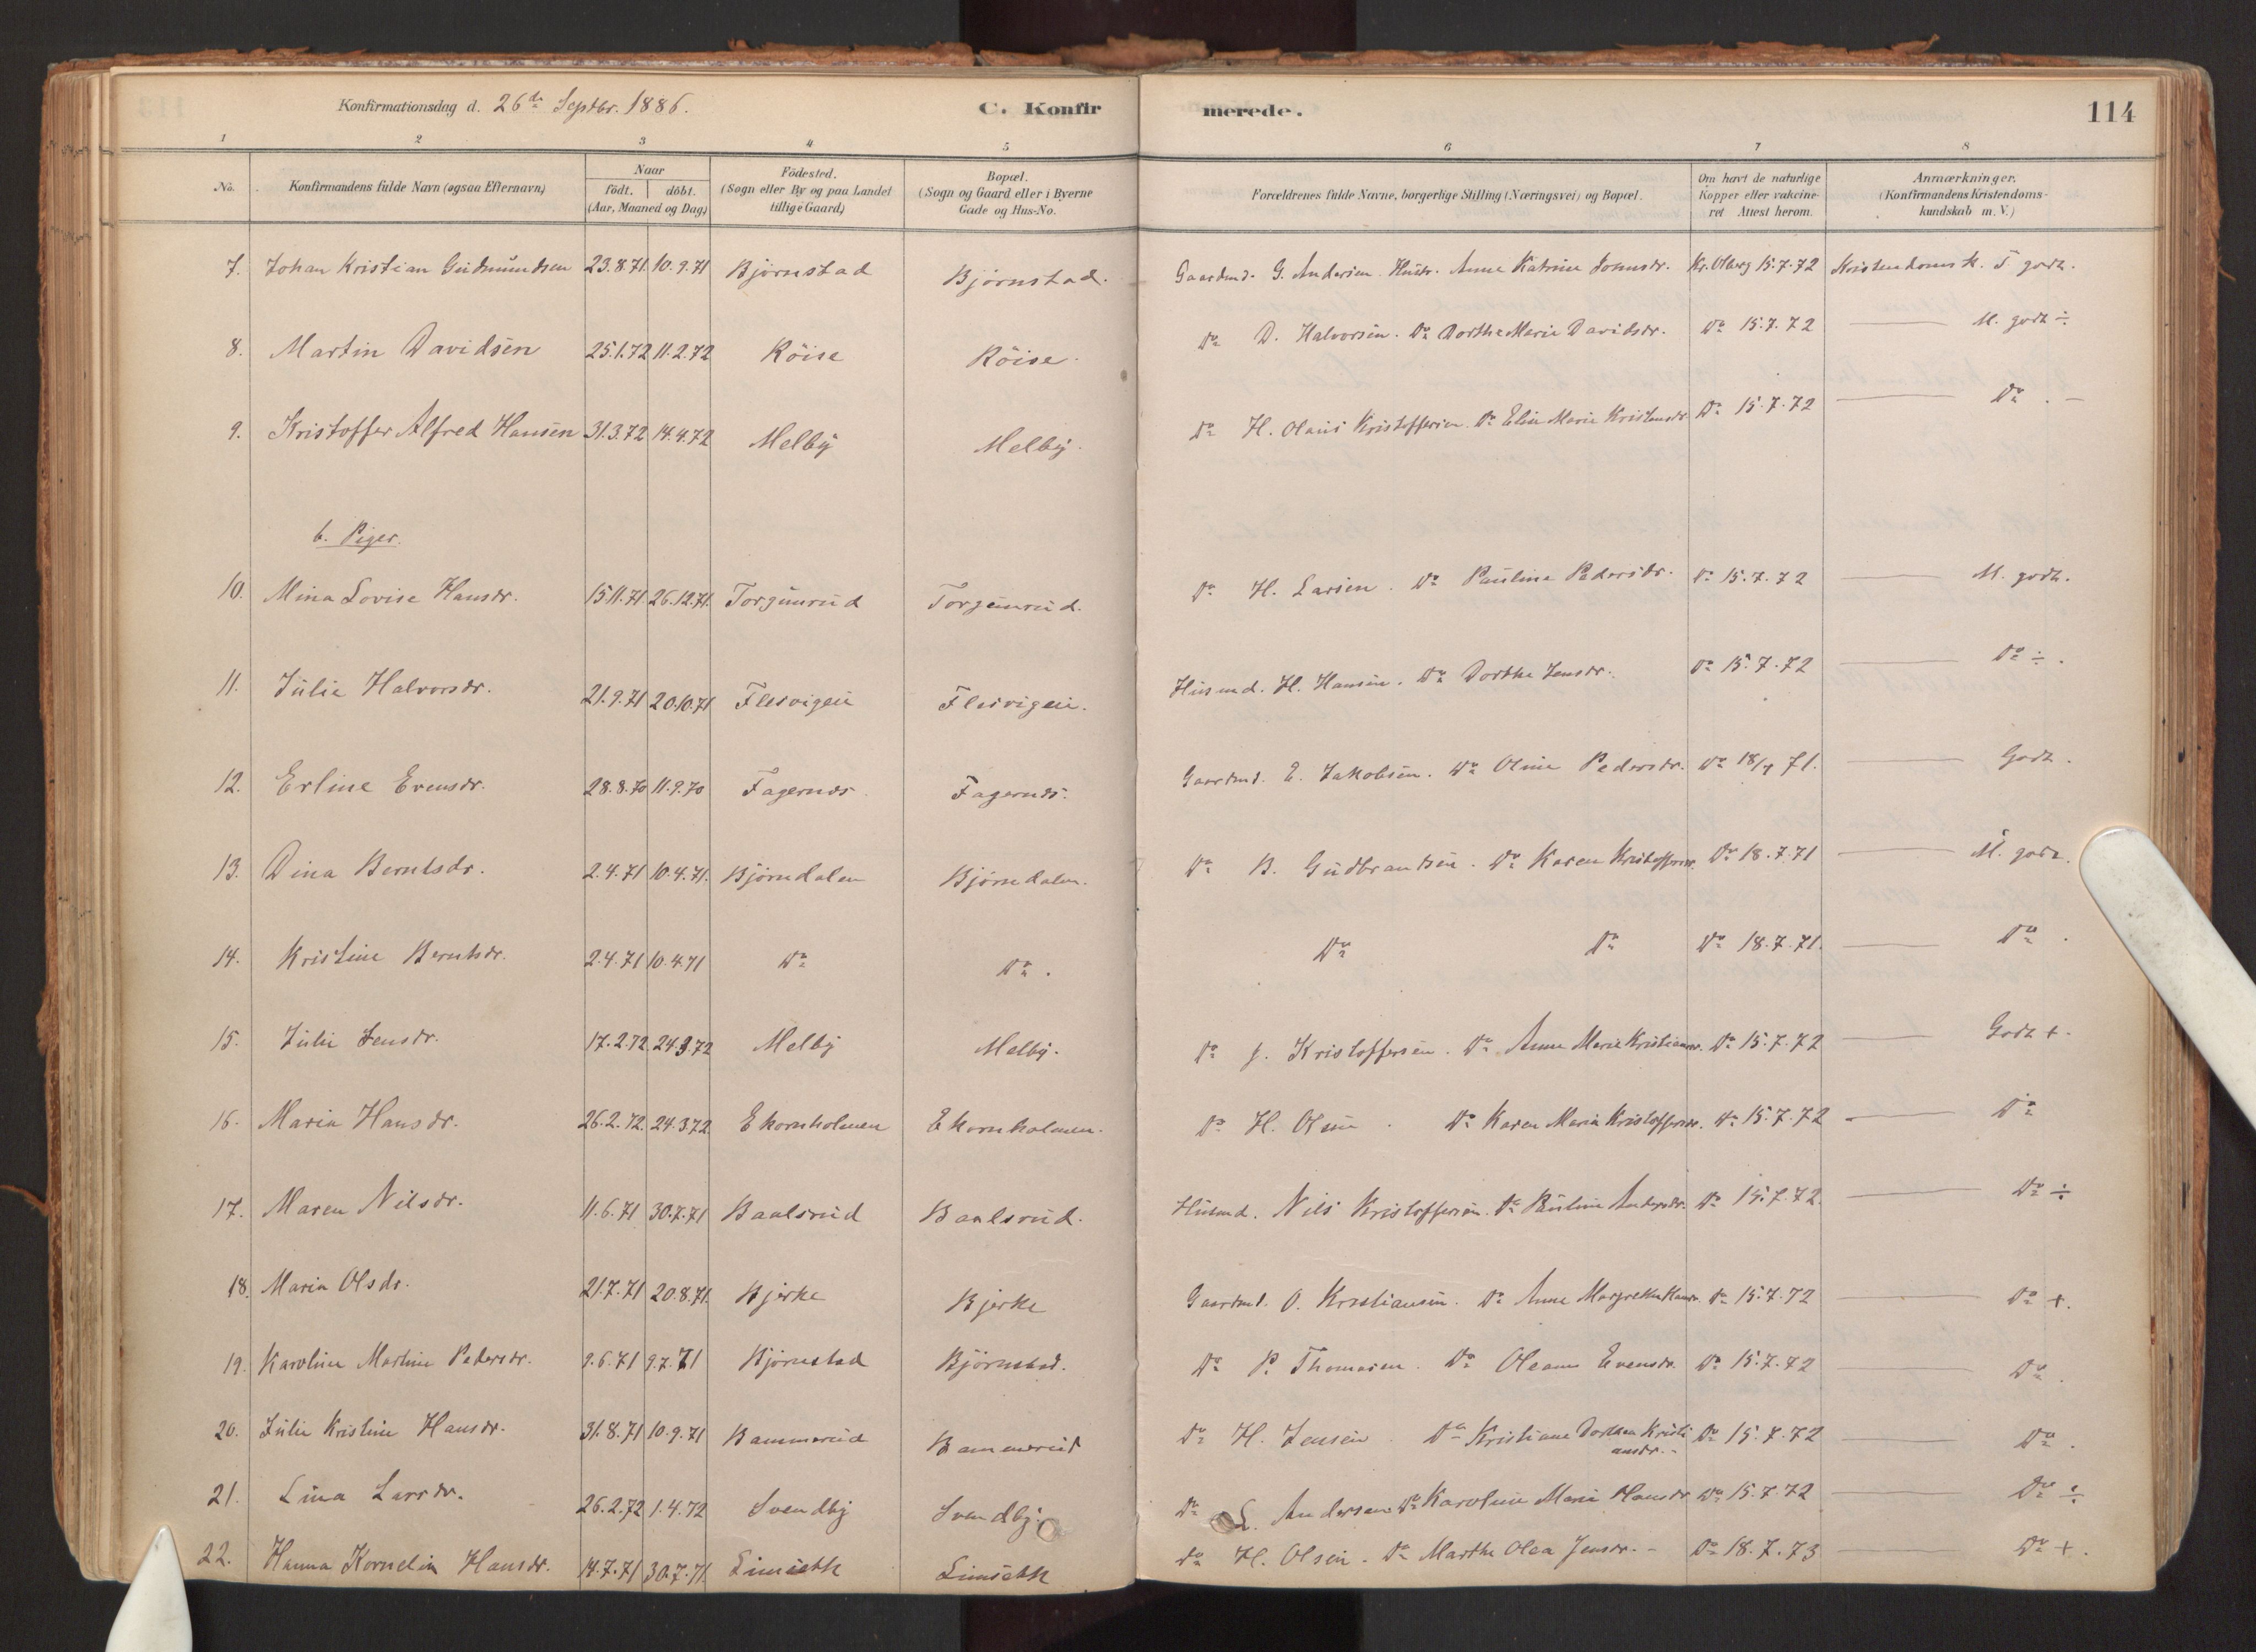 Konfirmationsdag d. 26de Septbr. 1886. C. Konfirmerede. 114
1 2 3 4 5 6 7 8
No. Konfirmandens fulde Navn (ogsaa Efternavn) Naar födt. döbt. (Aar, Maaned og Dag) Födested. (Sogn eller By og paa Landet tillige Gaard) Bopæl. (Sogn og Gaard eller i Byerne Gade og Hus-No. Forældrenes fulde Navne, borgerlige Stilling (Næringsvei) og Bopæl. Om havt de naturlige Kopper eller vakcineret Attest herom. Anmærkninger. (Konfirmandens Kristendomskundskab m. V.)
7. Johan Kristian Gudmundsen 23.8.71. 10.9.71 Björnstad Björnstad. Gaardmd. G. Andersen Hustr. Anne Katrine Johnsdr. Kr. Olberg 15.7.72 Kristendomsk. T. godt.
8. Martin Davidsen 25.1.72 11.2.72 Röise Röise. Do D. Halvorsen. Do Dorthe Marie Davidsdr. Do 15.7.72 M. godt ÷
9. Kristoffer Alfred Hansen 31.3.72 14.4.72 Melby Melby. Do H. Olaus Kristoffersen. Do Elin Marie Kristensdr. Do 15.7.72 Do. -
b. Piger.
10. Mina Lovise Hansdr. 15.11.71 26.12.71. Torgunrud Torgunrud. Do H. Larsen. Do Pauline Pedersdr. Do 15.7.72 M. godt.
11. Julie Halvorsdr. 21.9.71 20.10.71 Flesvigen Flesvigen. Husmd. H. Hansen. Do Dorthe Jensdr. Do 15.7.72 Do ÷.
12. Erline Evensdr. 28.8.70 11.9.70 Fagernæs. Fagernæs. Gaardmd. E. Jakobsen. Do Oline Pedersdr. Do 18/7 71. Godt.
13. Dina Berntsdr. 2.4.71 10.4.71. Björndalen Björndalen. Do B. Gudbrandsen. Do Karen Kristoffersdr. Do 18.7.71 M. godt.
14. Kristine Berntsdr. 2.4.71 10.4.71 Do Do. Do Do Do 18.7.71. Do.
15. Julie Jensdr. 17.2.72. 24.3.72 Melby Melby. Do J. Kristoffersen. Do Anne Marie Kristiansdr. Do 15.7.72 Godt +.
16. Maria Hansdr. 26.2.72. 24.3.72. Ekornholmen Ekornholmen. Do H. Olsen. Do Karen Maria Kristoffersdr. Do 15.7.72 Do
17. Maren Nilsdr. 11.6.71 30.7.71 Baalsrud Baalsrud. Husmd. Nils Kristoffersen. Do Pauline Andersdr. Do 15.7.72. Do ÷
18. Maria Olsdr. 21.7.71 20.8.71. Bjerke Bjerke Gaardmd. O. Kristiansen. Do Anne Margrethe Hansdr. Do 15.7.72 Do +.
19. Karoline Martine Pedersdr. 9.6.71 9.7.71 Björnstad Björnstad. Do P. Thomasen. Do Oleane Evensdr. Do 15.7.72 Do.
20. Julie Kristine Hansdr. 31.8.71 10.9.71 Bammerud Bammerud Do H. Jensen. Do Kristiane Dorthea Kristiansdr. - Do 15.7.72 Do.
21. Lina Larsdr. 26.2.72 1.4.72 Svendby Svendby. Do L. Andersen Do Karoline Marie Hansdr Do 15.7.72 Do ÷
22. Hanna Kornelia Hansdr. 14.7.71 30.7.71. Limsæth Limsæth Do H. Olsen. Do Marthe Olea Jensdr. - Do 18.7.73 Do +.